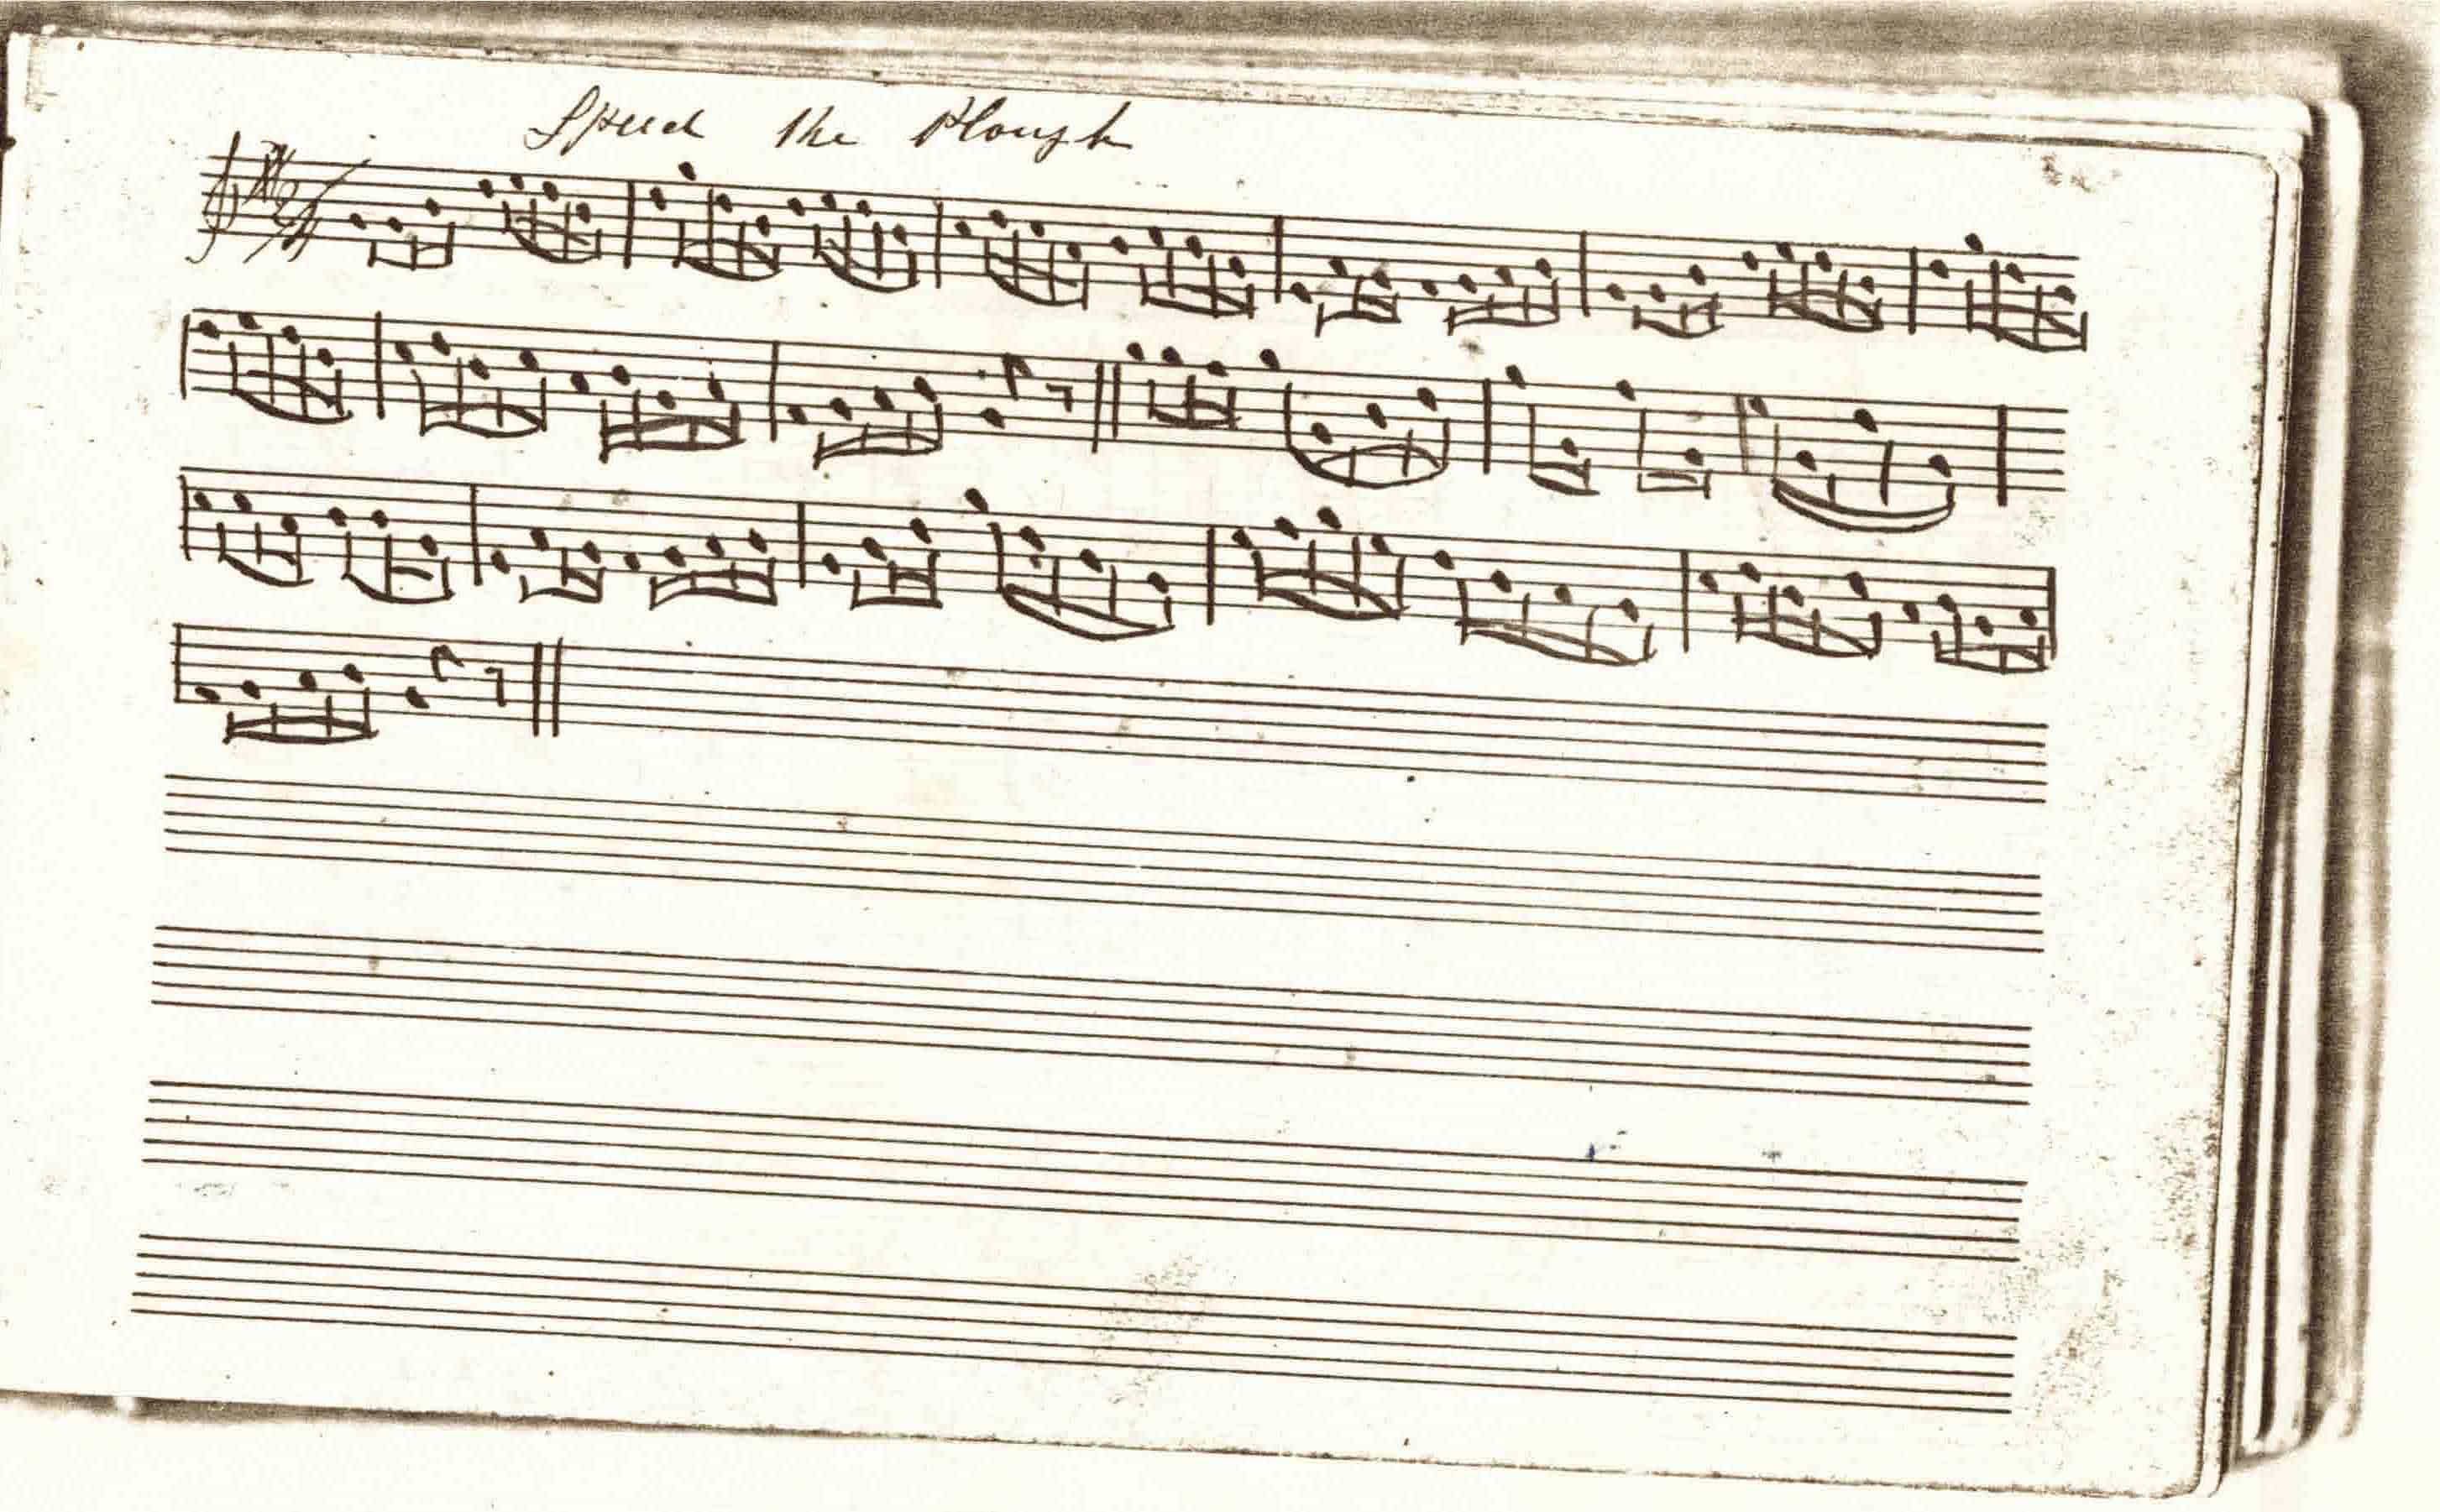 Speed the Plough